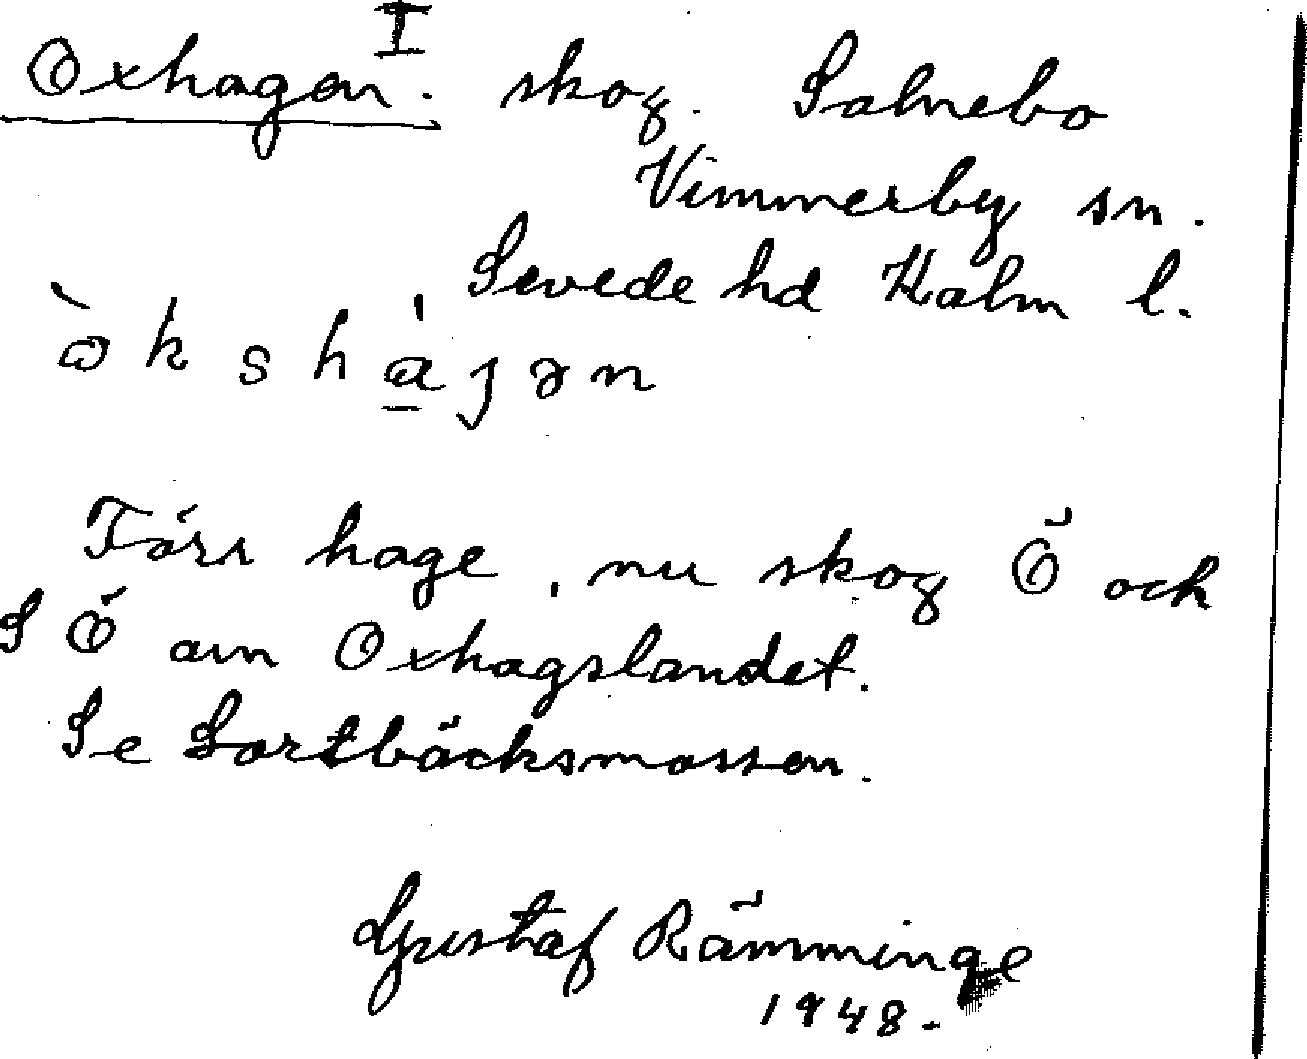 Oxhagen I. skog. Salnebo
Vimmerby sn.
Sevede hd Kalm l.
ɷ̀kshág̱ən
Förr hage, nu skog Ö och
S Ö om Oxhagslandet.
Se Sortbäcksmossen.
Gustaf Rämminge
1948.